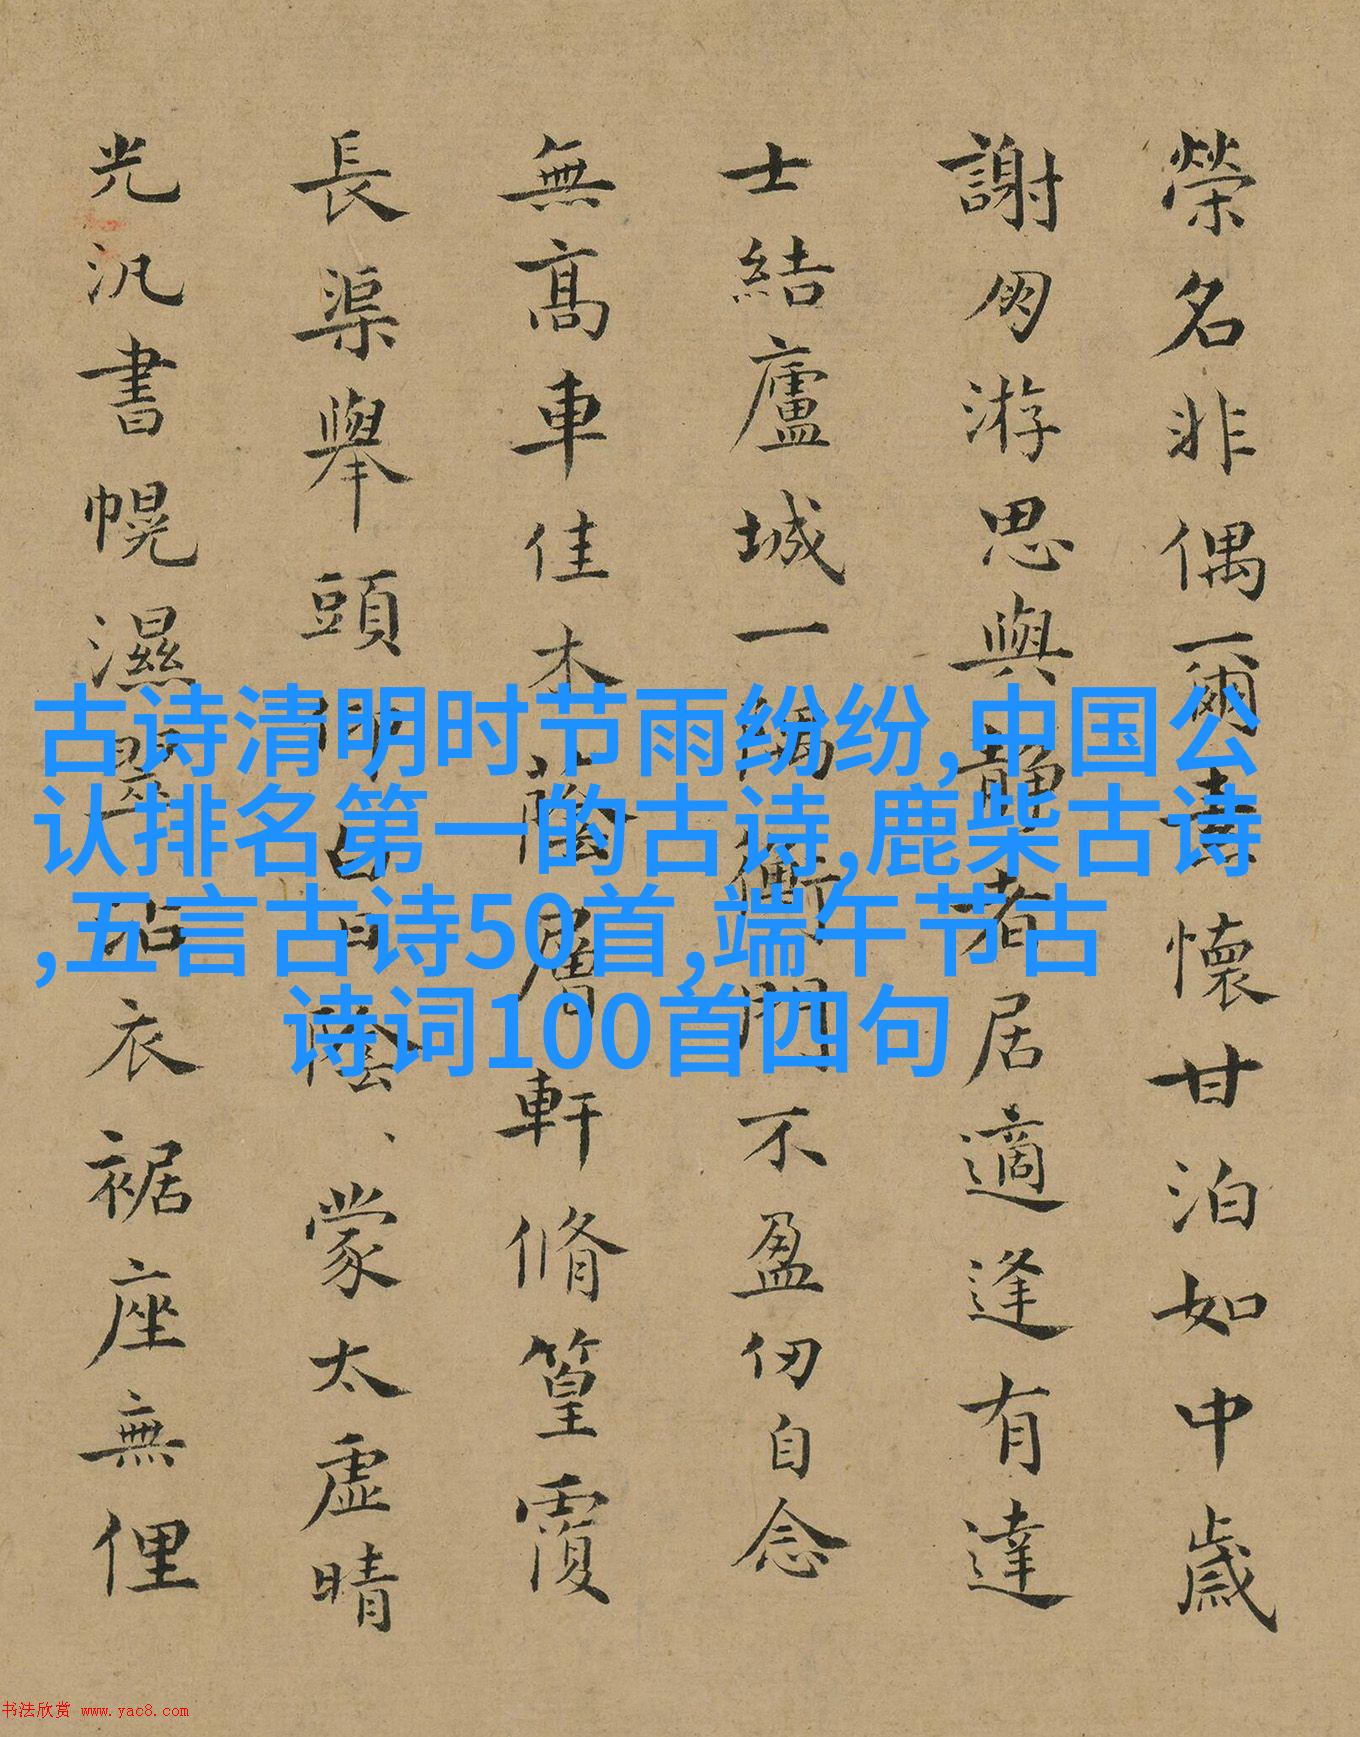 榮名非偶爾素懷甘泊如中歲
謝朋游思與靜者居適逢有達
士結廬城一隅衡門不盈仞自念
無高車佳木蔭層軒脩篁覆
長渠舉頭仰白日陰、蒙太虛晴
光汎書幌濕翠沾衣裾座無俚
古诗清明时节雨纷纷,中国公
认排名第一的古诗,鹿柴古诗
,五言古诗50首,端午节古
诗词100首四句
书法欣赏 www.yac8.com